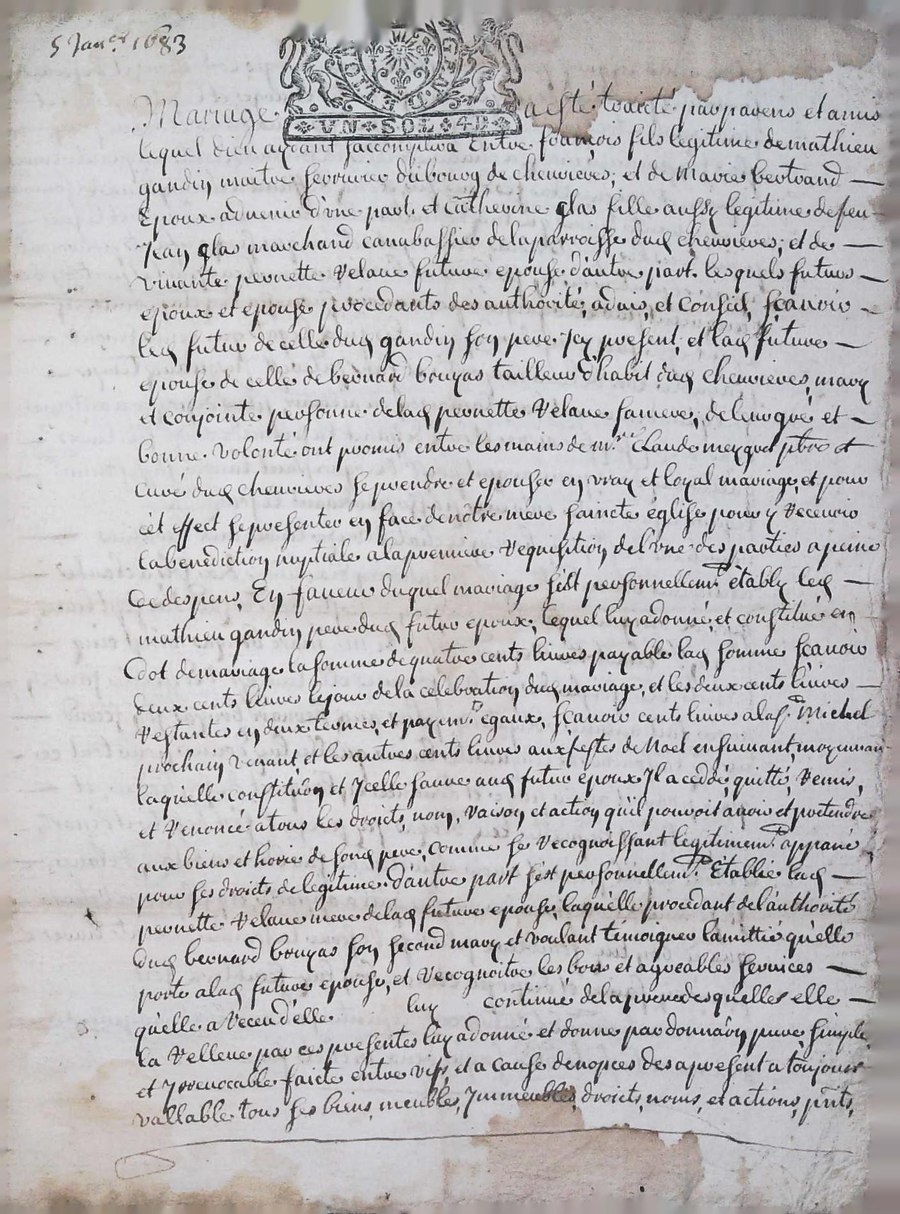 5 Janer 1683
GNAL DE LION
VN SOL 4D
Mariage a esté traicté par parens et amis
lequel dieu aydant saccomplira Entre françois fils legitime de mathieu
gandin maitre serrurier du bourg de chevrieres, et de Marie bertrand
Epoux advenir d'vne part. et Catherine glas fille aussy legitime de feu
Jean glas marchand canabassier de la parroisse dud chevrieres, et de
vivante pernette Velane future epouse d'autre part. lesquels futurs
epoux et epouse procedants des authorité, advis, et Conseil, sçavoir
led futur de celle dud gandin son pere Icy present, et lad future
epouse de celle de bernard bouyas tailleur d'habit dud chevrieres, mary
et conjointe personne de lad pernette Velane sa mere, de leur gré et
bonne volonté ont promis entre les mains de mre Claude pbre et
curé dud chevrieres se prendre et epouser en vray et loyal mariage, et pour
cét effect se presenter en face de nôtre mere saincte église pour y recevoir
la benediction nuptiale a la premiere requisition de l'vne des parties a peine
de despens, En faveur duquel mariage s'est personnellemt. établÿ led
mathieu gandin pere dud futur epoux, lequel luy a donné et constitué en
dot de mariage la somme de quatre cents livres payable lad somme sçavoir
deux cents livres le jour de la celebration dud mariage, et les deux cents livres
restantes en deux termes et payemts. egaux, sçavoir cents livres a la st. Michel
prochain venant et les autres cents livres aux festes de Noel ensuivant, moyennan
laquelle constituôn et Icelle sauve aud futur epoux Il a cedé, quitté, remis,
et renoncé a tous les droits, nom, raison, et action qu'il pouvoit avoir et pretendre
aux biens et hoirie de sond pere, comme se recognoissant legitimemt. appané
pour ses droits de legitime. d'autre part s'est personnellemt. Etablie lad
pernette Velane mere de lad future epouse, laquelle procedant de l'authorité
dud bernard bouyas son second mary et voulant témoigner lamittié quelle
porte a lad future epouse, et recognoitre les bons et agreables services
quelle a receu d'elle luy continué de la preuve desquelles elle
la relleve par ces presentes luy a donné et donne par donnaôn pure simple,
et Irrevocable faicte entre vifs, et a cause de nopces des a present a toujours
vallable tous ses biens, meubles, Immeubles, droits, noms, et actions, pnts,